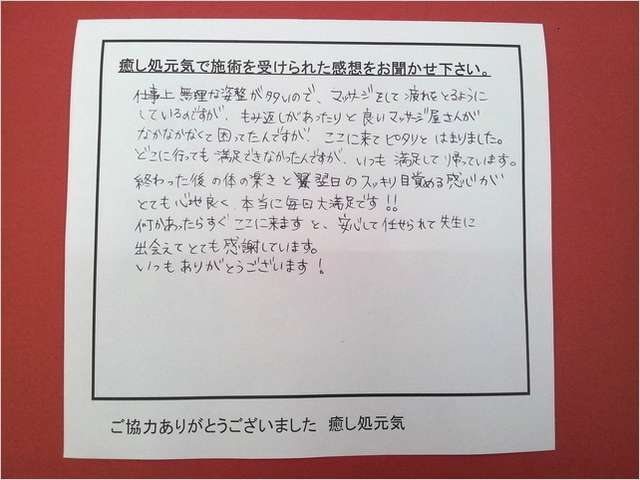 癒し処元気で施術を受けられた感想をお聞かせ下さい。
仕事上 無理な姿整が多いので、マッサージをして 疲れをとるように
しているのですが、もみ返しがあったりと 良いマッサージ屋さんが
なかなかなくて 困ってたんですが! ここに来て ピタリと はまりました。
どこに行っても 満足できなかったんですが、いつも 満足して 帰っています。
終わった後の体の楽さと 翌日の スッキリ目覚める感じが
とても心地良く 本当に毎日大満足です!!
何かあったらすぐ ここに来ます と、安心して任せられて先生に
出会えてとても感謝しています。
いつもありがとうございます!
ご協力ありがとうございました 癒し処元気